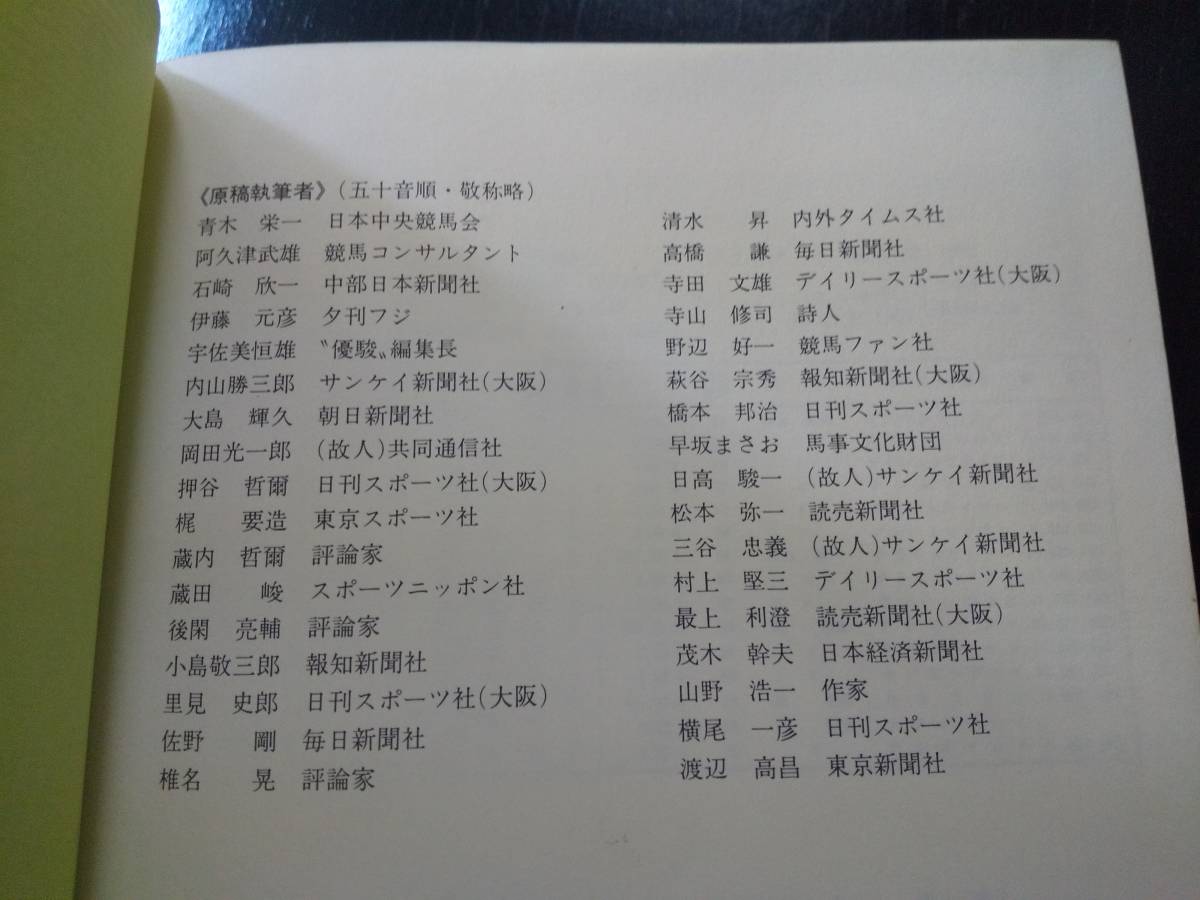 《原稿執筆者》(五十音順・敬称略)
青木 栄一 日本中央競馬会
阿久津武雄 競馬コンサルタント
石崎 欣一 中部日本新聞社
伊藤 元彦 夕刊フジ
宇佐美恒雄 〝優駿〟編集長
内山勝三郎 サンケイ新聞社(大阪)
大島 輝久 朝日新聞社
岡田光一郎 (故人)共同通信社
押谷 哲爾 日刊スポーツ社(大阪)
梶 要造 東京スポーツ社
蔵内 哲爾 評論家
蔵田 峻 スポーツニッポン社
後閑 亮輔 評論家
小島敬三郎 報知新聞社
里見 史郎 日刊スポーツ社(大阪)
佐野 剛 毎日新聞社
椎名 晃 評論家
清水 昇 内外タイムス社
高橋 謙 毎日新聞社
寺田 文雄 デイリースポーツ社(大阪)
寺山 修司 詩人
野辺 好一 競馬ファン社
萩谷 宗秀 報知新聞社(大阪)
橋本 邦治 日刊スポーツ社
早坂まさお 馬事文化財団
日高 駿一 (故人)サンケイ新聞社
松本 弥一 読売新聞社
三谷 忠義 (故人)サンケイ新聞社
村上 堅三 デイリースポーツ社
最上 利澄 読売新聞社(大阪)
茂木 幹夫 日本経済新聞社
山野 浩一 作家
横尾 一彦 日刊スポーツ社
渡辺 高昌 東京新聞社